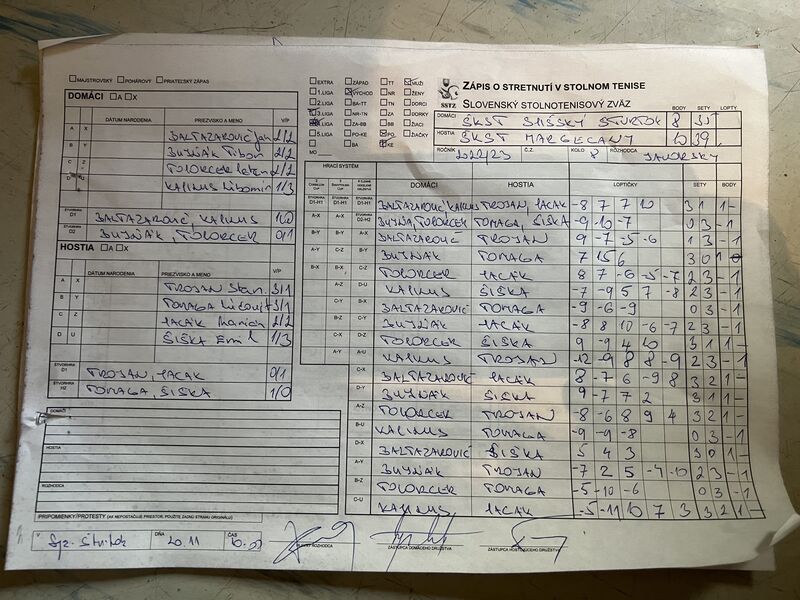 MAJSTROVSKÝ POHÁROVÝ PRIATEĽSKÝ ZÁPAS
DOMÁCI A X
DÁTUM NARODENIA PRIEZVISKO A MENO V/P
A X BALTAZAROVIČ Ján 2/2
B Y BUJŇÁK Tibor 2/2
C Z TOLORCER 2/2
D U KALINUS Ľubomír 1/3
ŠTVORHRA D1 BALTAZAROVIČ, KALINUS 1/0
ŠTVORHRA D2 BUJŇÁK, TOLORCER 0/1
HOSTIA A X
DÁTUM NARODENIA PRIEZVISKO A MENO V/P
A X TROJAN Stan. 3/1
B Y TOMAGA Ľudovít 3/1
C Z HACÁK 2/2
D U ŠIŠKA Emil 1/3
ŠTVORHRA D1 TROJAN, HACÁK 0/1
ŠTVORHRA H2 TOMAGA, ŠIŠKA 1/0
DOMÁCI
HOSTIA
ROZHODCA
PRIPOMIENKY/PROTESTY (AK NEPOSTAČUJE PRIESTOR, POUŽITE ZADNÚ STRANU ORIGINÁLU)
V Sp. Štvrtok DŇA 20.11 ČAS 10.00
HLAVNÝ ROZHODCA ZÁSTUPCA DOMÁCEHO DRUŽSTVA ZÁSTUPCA HOSŤUJÚCEHO DRUŽSTVA
EXTRA ZÁPAD TT MUŽI
1.LIGA VÝCHOD NR ŽENY
2.LIGA BA-TT TN DORCI
3.LIGA NR-TN ZA DORKY
4.LIGA ZA-BB BB ŽIACI
5.LIGA PO-KE PO ŽIAČKY
BA KE
MO
SSTZ
ZÁPIS O STRETNUTÍ V STOLNOM TENISE
SLOVENSKÝ STOLNOTENISOVÝ ZVÄZ
BODY SETY LOPTY
DOMÁCI ŠKST SPIŠSKÝ ŠTVRTOK 8 35
HOSTIA ŠKST MARGECANY 10 39
ROČNÍK 2022/23 Č.Z. KOLO 8 ROZHODCA JAVORSKÝ
HRACÍ SYSTÉM
DOMÁCI HOSTIA LOPTIČKY SETY BODY
D1-H1 D1-H1 D1-H1 BALTAZAROVIČ, KALINUS TROJAN, HACÁK -8 7 7 10 3 1 1 -
A-X A-X D2-H2 BUJŇÁK, TOLORCER TOMAGA, ŠIŠKA -9 -10 -7 0 3 - 1
B-Y B-Y A-X BALTAZAROVIČ TROJAN 9 -7 -5 -6 1 3 - 1
A-Y C-Z B-Y BUJŇÁK TOMAGA 7 15 6 3 0 1
B-X B-X C-Z TOLORCER HACÁK 8 7 -6 -5 -7 2 3 - 1
A-Z D-U KALINUS ŠIŠKA -7 -9 5 7 -8 2 3 - 1
C-Y B-X BALTAZAROVIČ TOMAGA -9 -6 -9 0 3 - 1
B-Z BUJŇÁK HACÁK -8 8 10 -6 -7 2 3 - 1
C-X D-Z TOLORCER ŠIŠKA 9 -9 4 10 3 1 1 -
A-Y A-U KALINUS TROJAN -12 -9 8 8 -9 2 3 - 1
C-X BALTAZAROVIČ HACÁK 8 -7 6 -9 8 3 2 1 -
D-Y BUJŇÁK ŠIŠKA -9 7 7 2 3 1 1 -
A-Z TOLORCER TROJAN -8 -6 8 9 4 3 2 1 -
B-U KALINUS TOMAGA -9 -9 -8 0 3 - 1
D-X BALTAZAROVIČ ŠIŠKA 5 4 3 3 0 1 -
A-Y BUJŇÁK TROJAN -7 2 5 -4 -10 2 3 - 1
B-Z TOLORCER TOMAGA -5 -10 -6 0 3 - 1
C-U KALINUS HACÁK -5 -11 10 7 3 3 2 1 -